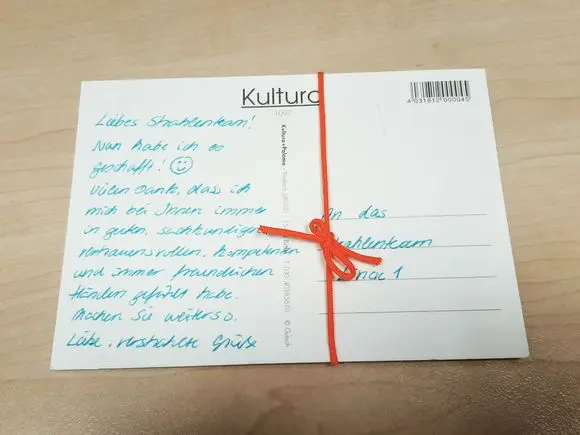 Kultura
1097
4 031812 000045
Liebes Strahlenteam!
Nun habe ich es
geschafft! ☺
Vielen Dank, dass ich
mich bei Ihnen immer
in guten, sachkundigen
vertrauensvollen, kompetenten
und immer freundlichen
Händen gefühlt habe.
Machen Sie weiter so.
Liebe, verstrahlte Grüße
Kultura + Paloma
© Gutsch
An das
Strahlenteam
1